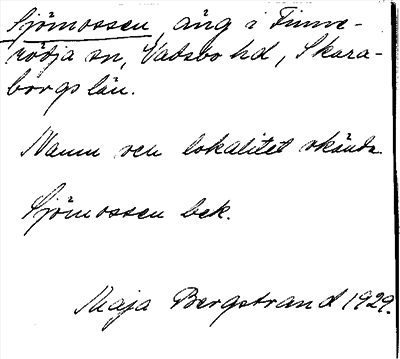 Sjömossen, äng i Finne-
rödja sn, Vadsbo hd, Skara-
borgs län.
Namn och lokalitet okända.
Sjömossen bek.
Maja Bergstrand 1929.